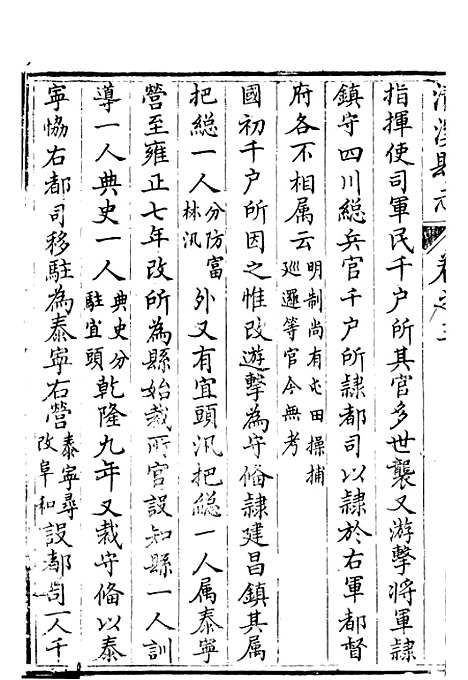 清溪縣志 卷之三
指揮使司軍民千户所其官多世襲又游擊將軍隷
鎮守四川總兵官千户所隷都司以隷於右軍都督
府各不相属云明制尚有屯田操捕廵邏等官今無考
國初千户所因之惟改遊擊為守僃隷建昌鎮其属
把縂一人分防富林汛外又有宜頭汛把縂一人属泰寧
營至雍正七年改所為縣始裁所官設知縣一人訓
導一人典史一人典史分駐宜頭乾隆九年又裁守僃以泰
寧恊右都司移駐為泰寧右營泰寧尋改阜和設都司一人千